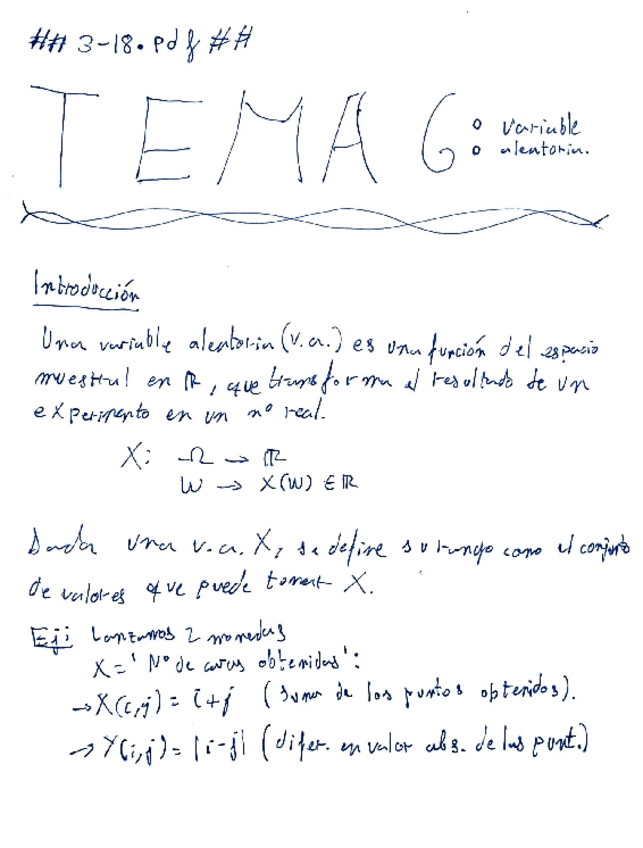 ## 3-18.pdf ##
TEMA 6: variable
aleatoria.
Introducción
Una variable aleatoria (v.a.) es una función del espacio
muestral en ℝ, que transforma el resultado de un
experimento en un nº real.
X: Ω → ℝ
W → X(W) ∈ ℝ
Dada una v.a. X, se define su rango como el conjunto
de valores que puede tomar X.
Ej: Lanzamos 2 monedas
X = 'Nº de caras obtenidas':
→ X(i,j) = i+j (suma de los puntos obtenidos).
→ Y(i,j) = |i-j| (difer. en valor abs. de las punt.)